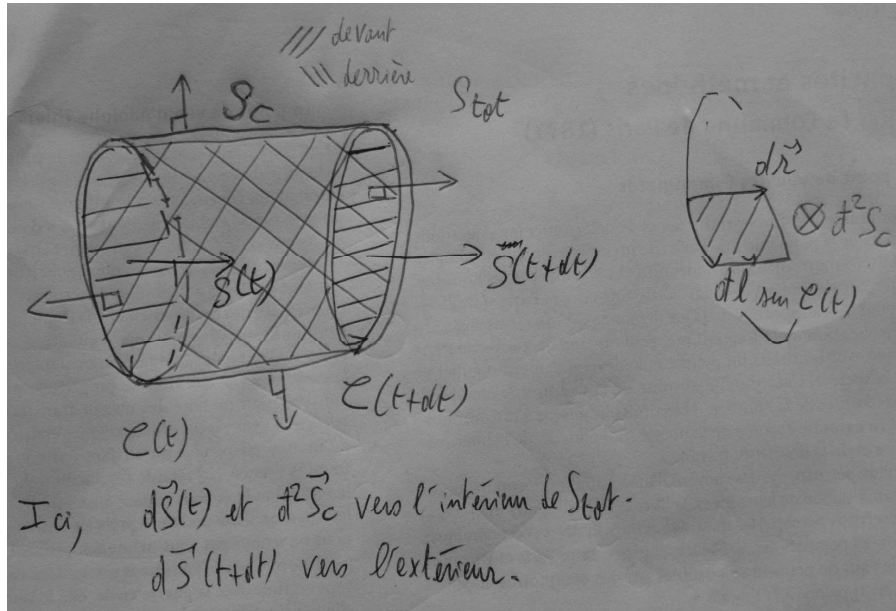 /// devant
\\\ derrière
S_c
S_tot
S⃗(t)
S⃗(t+dt)
C(t)
C(t+dt)
dr⃗
⊗ đ²S_c
dl sur C(t)
Ici, dS⃗(t) et đ²S⃗_c vers l'intérieur de S_tot.
dS⃗(t+dt) vers l'extérieur.